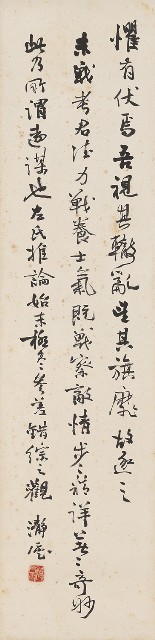 懼有伏焉吾視其轍亂望其旗靡故逐之
未戰考君德力戰養士氣既戰察敵情步々精詳着々奇妙
此乃所謂遠謀也左氏推論始末極冬參差錯綜之觀 瀞